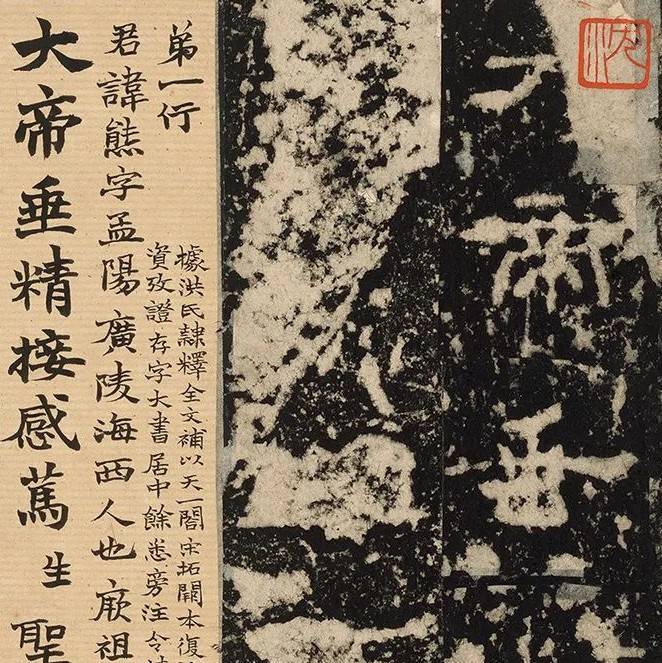 帝垂
弟一行
據洪氏隸釋全文補以天一閣宋拓闕本復
資攷證存字大書居中餘悉旁注令
君諱熊字孟陽廣陵海西人也厥祖
大帝垂精接感篤生聖